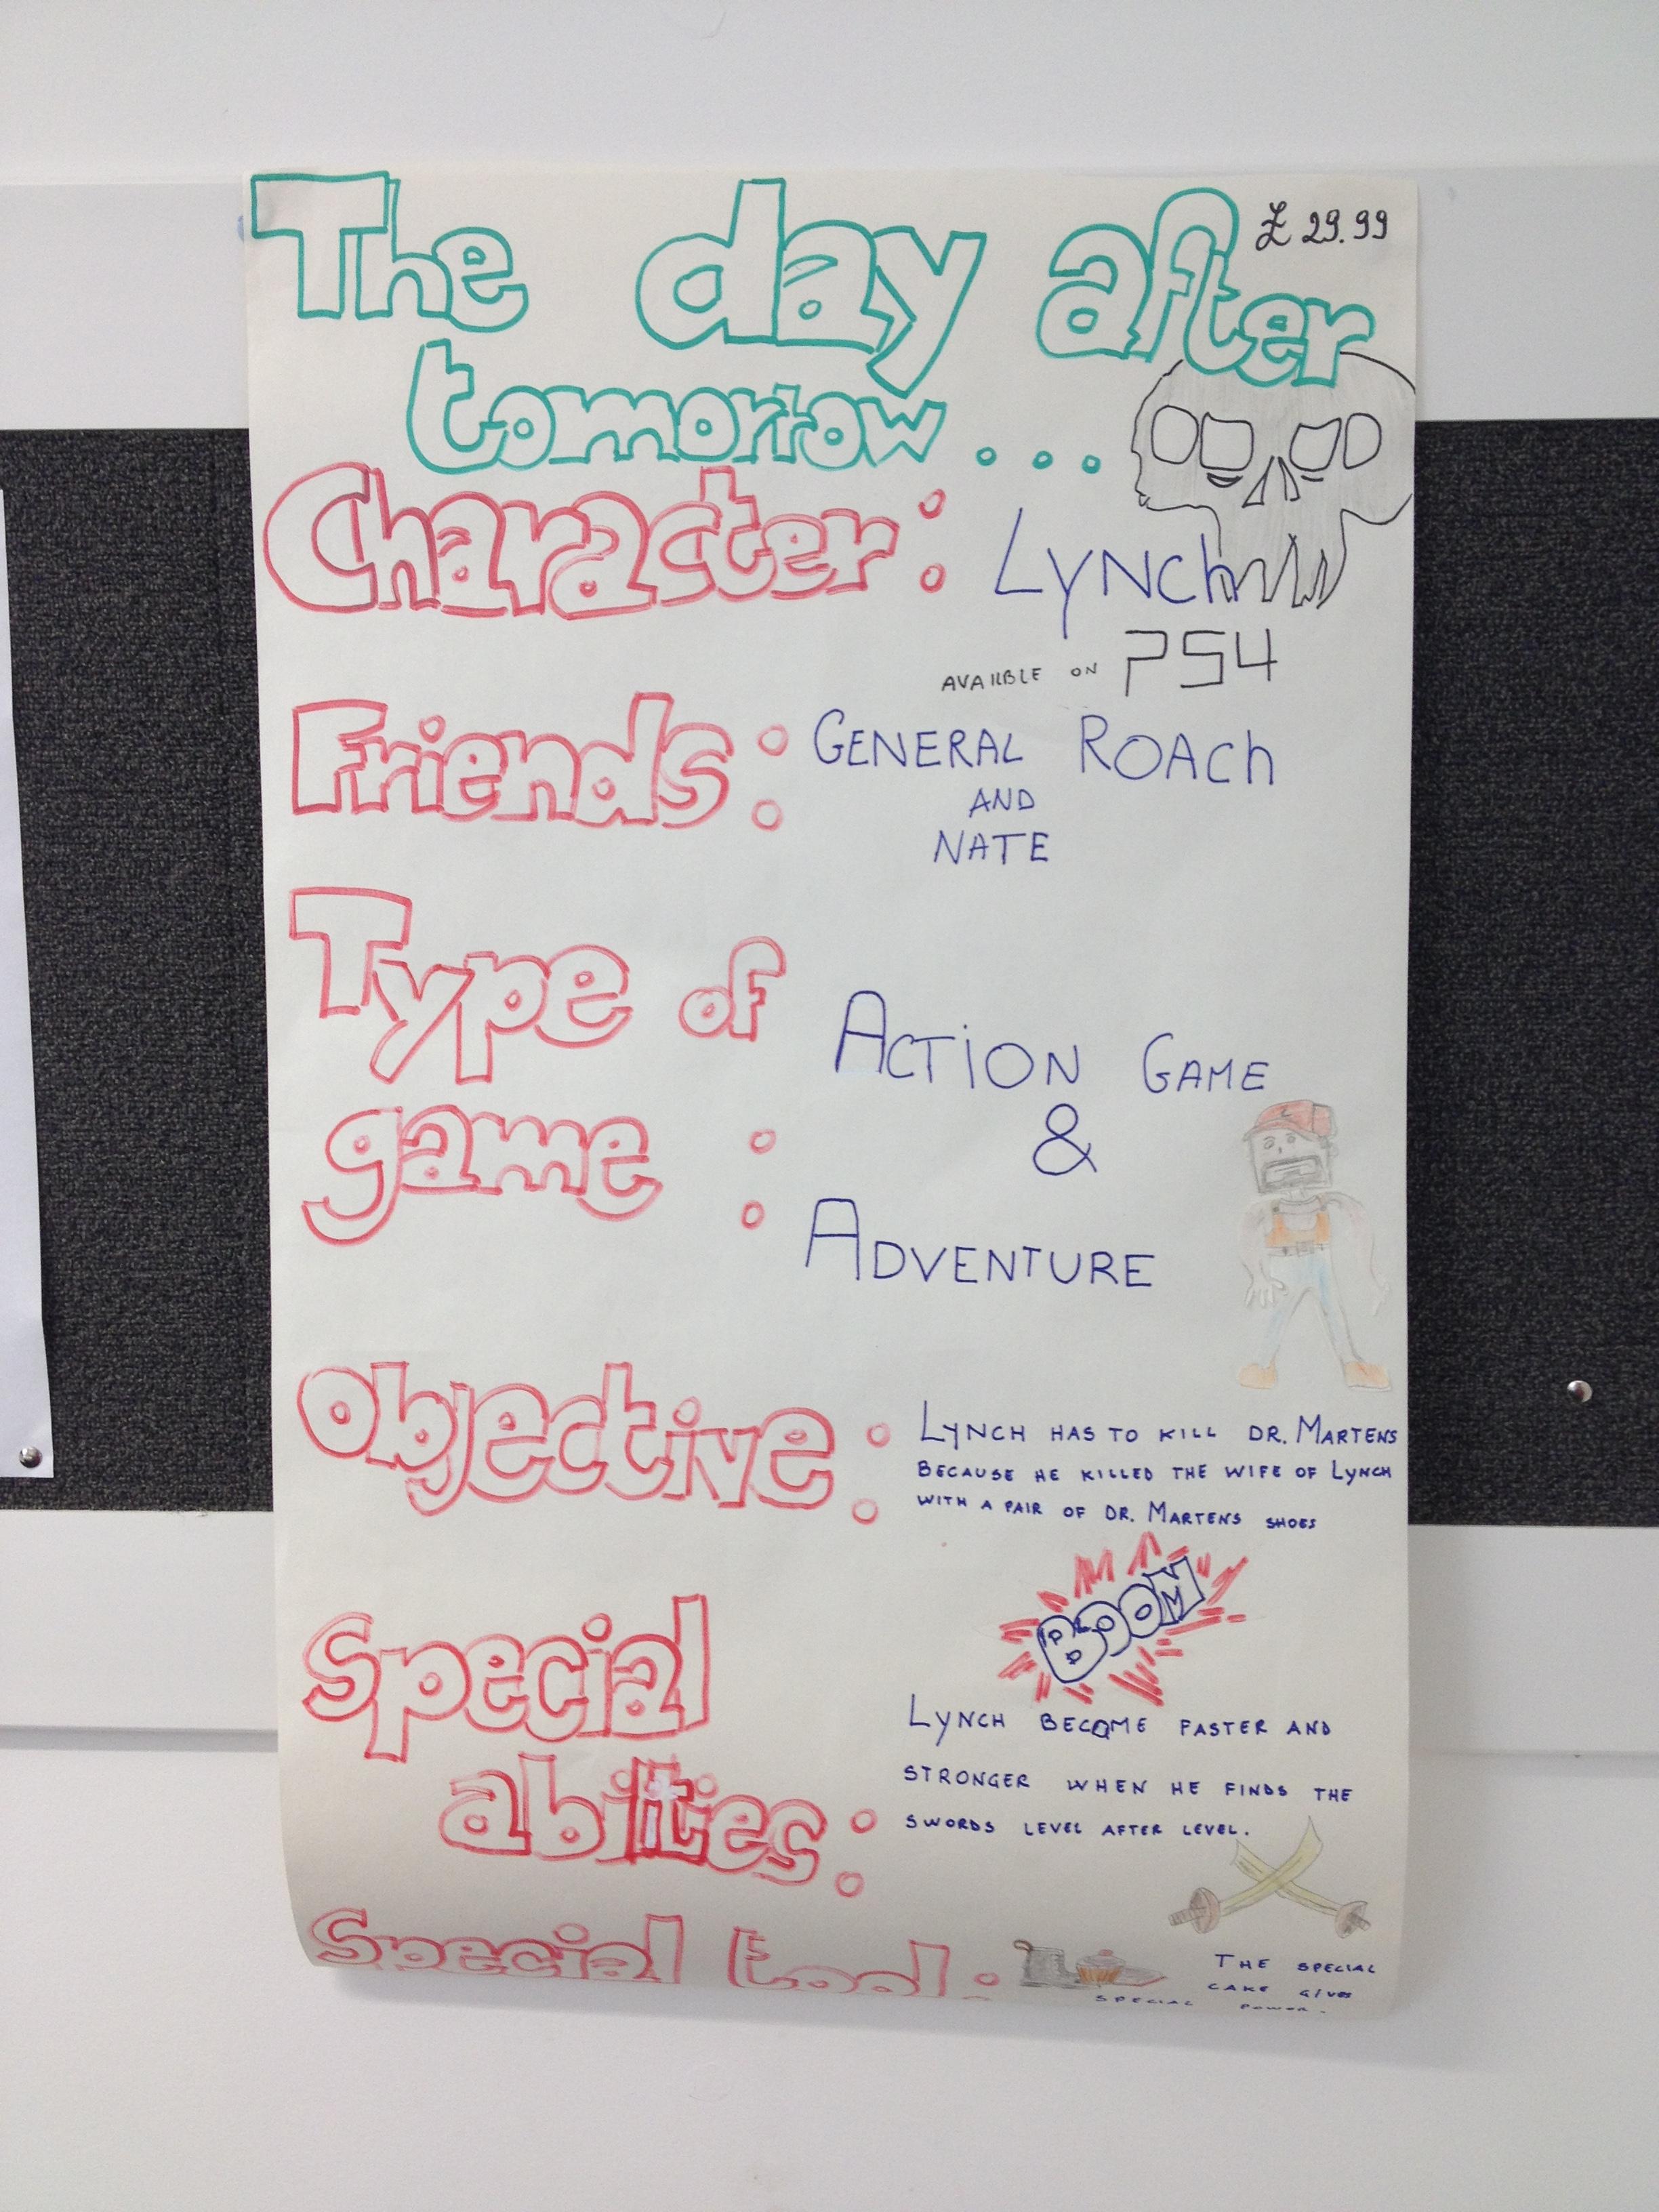 The day after
£ 29.99
tomorrow...
Character: Lynch
AVAILBLE ON PS4
Friends: GENERAL ROACh
AND
NATE
Type of
game:
ACTION GAME
&
ADVENTURE
Objective: LYNCH HAS TO KILL DR. MARTENS
BECAUSE HE KILLED THE WIFE OF LYNCH
WITH A PAIR OF DR. MARTENS SHOES
BOOM
Special
abilities:
LYNCH BECOME FASTER AND
STRONGER WHEN HE FINDS THE
SWORDS LEVEL AFTER LEVEL.
Special tool:
THE SPECIAL
CAKE GIVES
SPECIAL POWER.